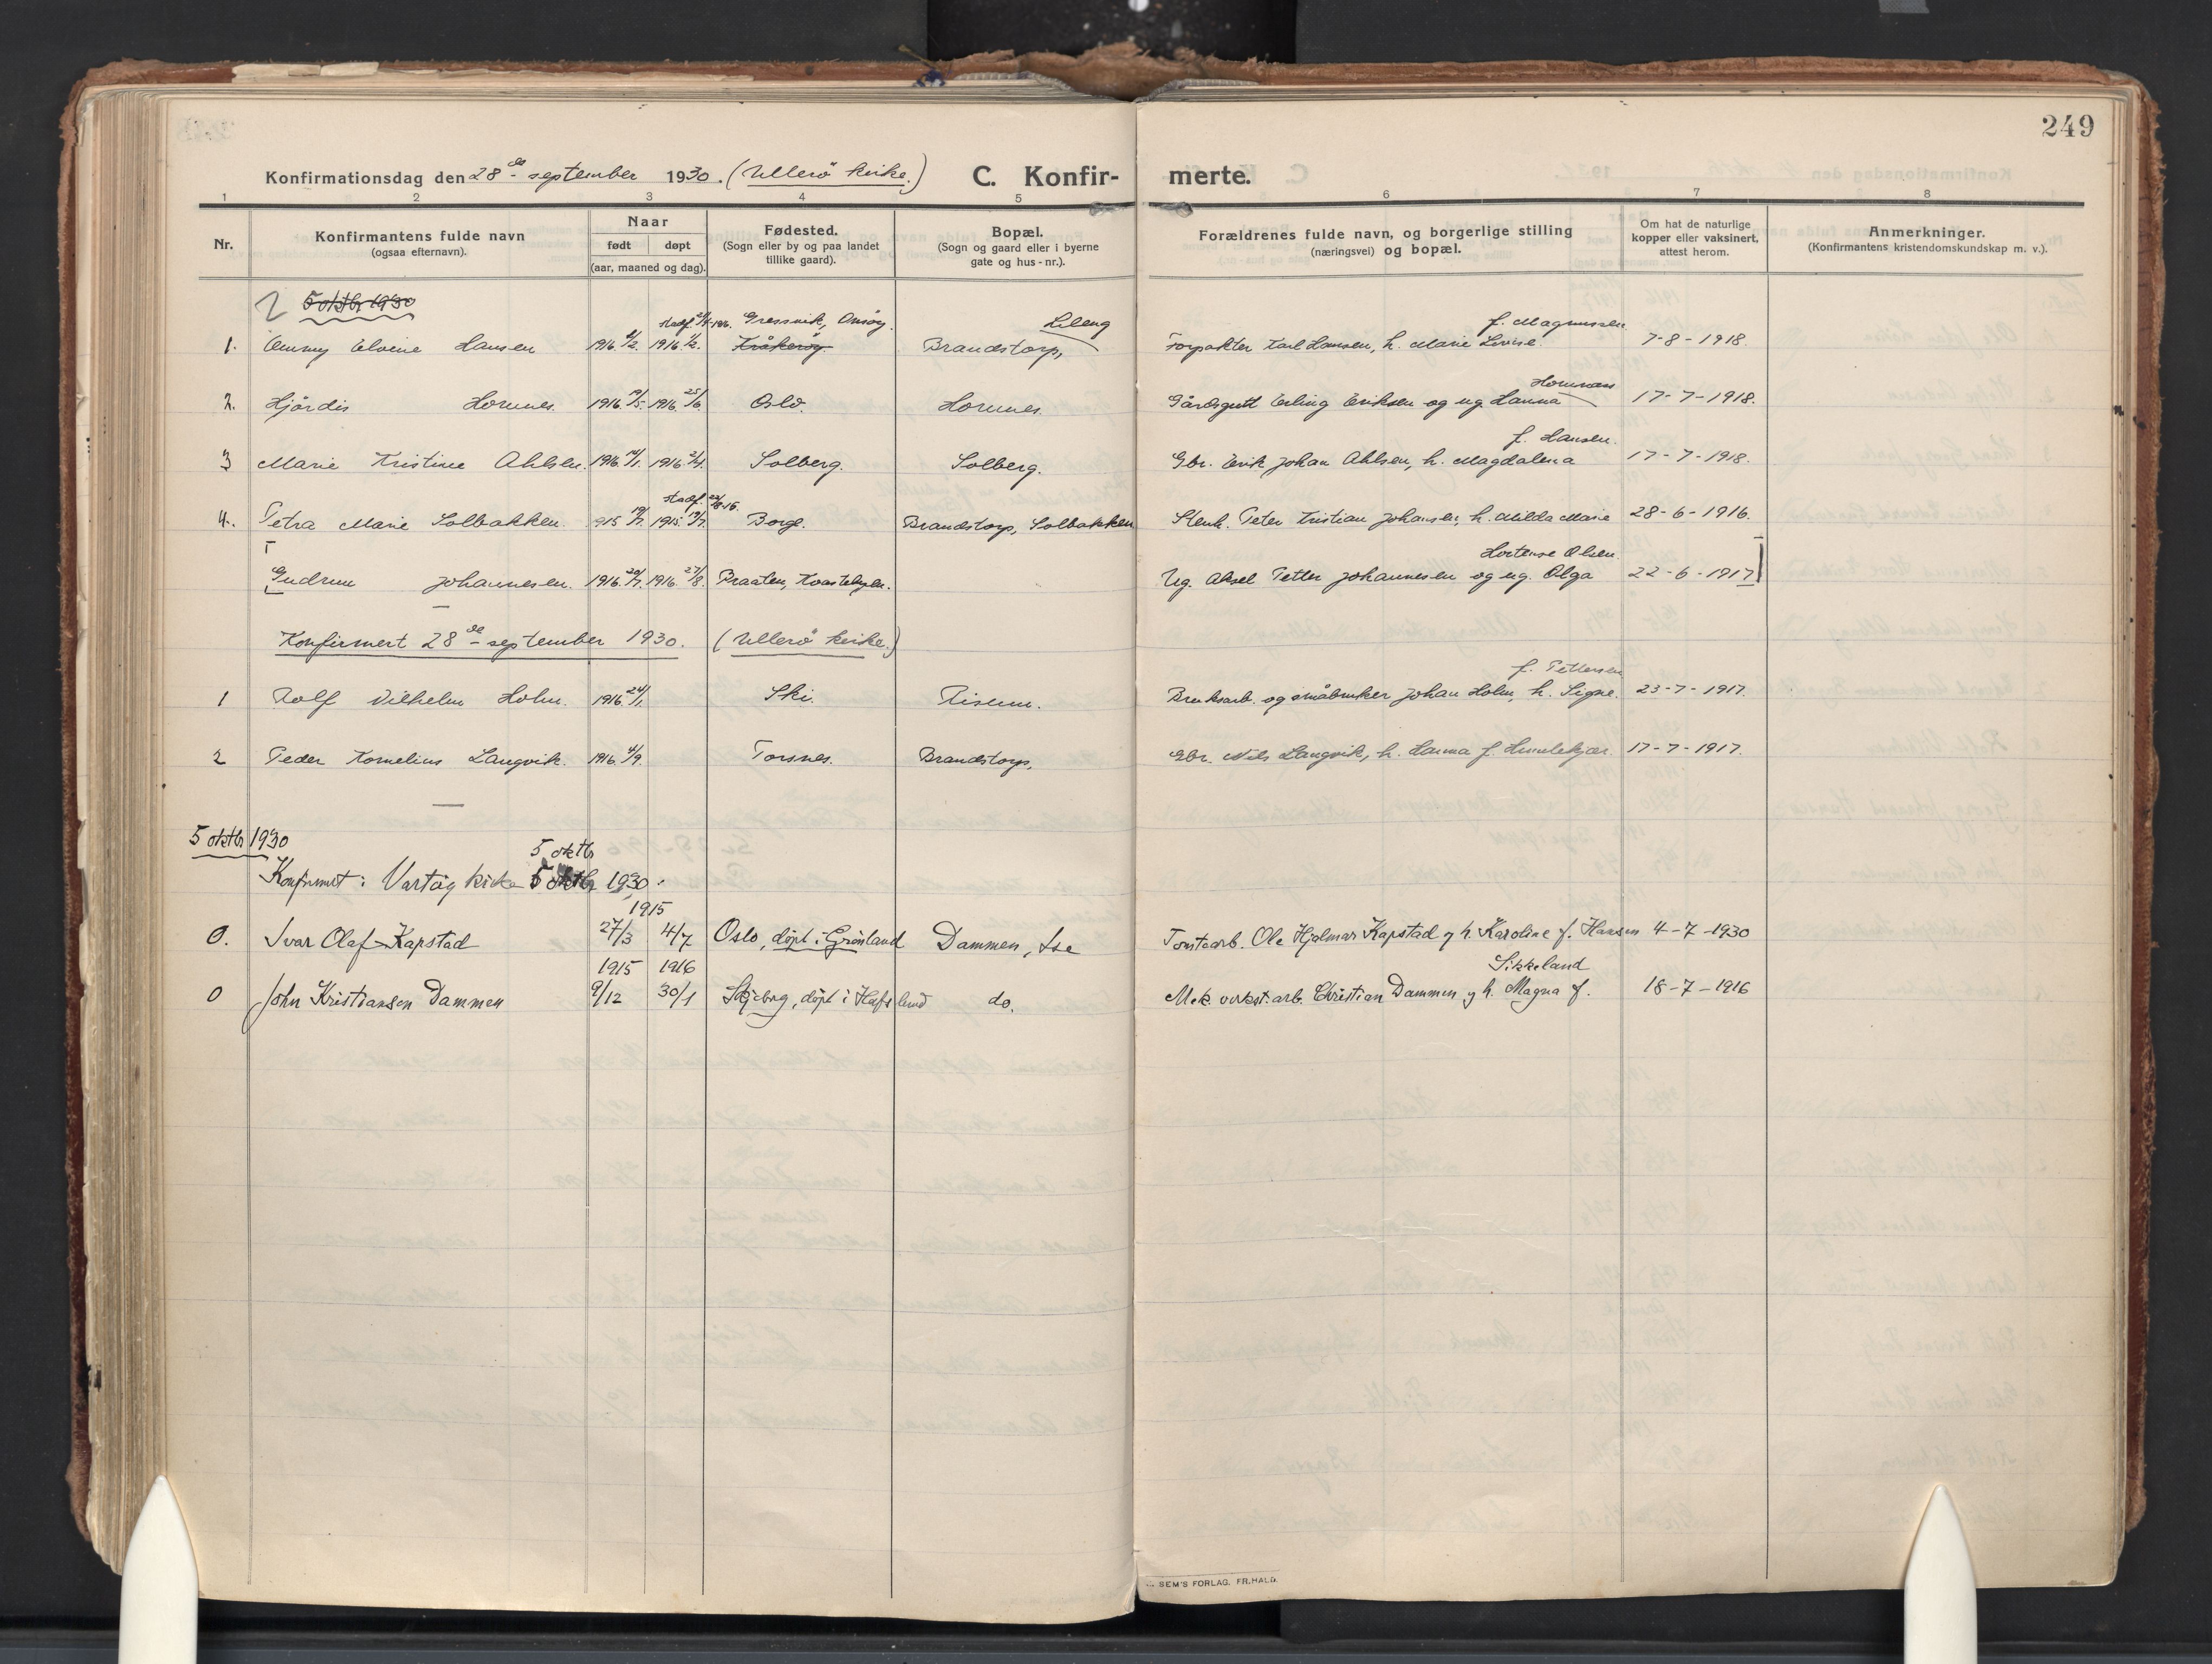 249
Konfirmationsdag den 28de september 1930. (Ullerö kirke.) C. Konfir- merte.
1 2 3 4 5 6 7 8
Nr. Konfirmantens fulde navn (ogsaa efternavn). Naar født døpt (aar, maaned og dag). Fødested. (Sogn eller by og paa landet tillike gaard). Bopæl. (Sogn og gaard eller i byerne gate og hus-nr.). Forældrenes fulde navn, og borgerlige stilling (næringsvei) og bopæl. Om hat de naturlige kopper eller vaksinert, attest herom. Anmerkninger. (Konfirmantens kristendomskundskap m. v.).
5 oktbr 1930
Gressvik, Onsøy. Lileng f. Magnussen
1. Emmy Elvine Hansen 1916 1916 Kråkerøy Brandstorp, Forpakter Karl Hansen, h. Marie Lovise. 7-8-1918.
Hornnæs
2. Hjördis Hornnes. 1916 19/5 1916 25/6 Oslo. Hornnes. Gårdsgutt Erling Eriksen og ug. Hanna 17-7-1918.
f. Hansen.
3 Marie Kristine Ahlsen. 1916 1916 Solberg. Solberg. Gbr. Erik Johan Ahlsen, h. Magdalena 17-7-1918.
4. Petra Marie Solbakken. 1915 19/7 1915 19/7 Borge. Brandstorp, Solbakken Stenh. Peter Kristian Johansen, h. Milda Marie 28-6-1916.
Hortense Olsen.
Gudrun Johannesen. 1916 20/7 1916 27/8 Braaten, Ug. Aksel Petter Johannesen og ug. Olga 22-6-1917
Konfirmert 28de september 1930. (Ullerö kirke.)
f. Pettersen
1 Rolf Vilhelm Holm. 1916 24/1 Ski. Risum. Bruksarb. og småbruker Johan Holm, h. Signe. 23-7-1917.
2 Peder Kornelius Langvik. 1916 4/9 Torsnes. Brandstorp, Gbr. Nils Langvik, h. Hanna f. Humlekjær. 17-7-1917.
5 oktbr 1930
5 oktbr
Konfirmert i Varteig kirke 5 oktbr 1930.
1915
0. Ivar Olaf Kapstad 27/3 4/7 Oslo, døpt i Grønland Dammen, Ise Tomtearb. Ole Hjalmar Kapstad og h. Karoline f. Hansen 4-7-1930
1915 1916 Sikkeland
0 John Kristiansen Dammen 9/12 30/1 Skjeberg, døpt i Hafslund do. Mek. verkst. arb. Christian Dammen og h. Magna f. 18-7-1916
SEM'S FORLAG. FR.HALD.